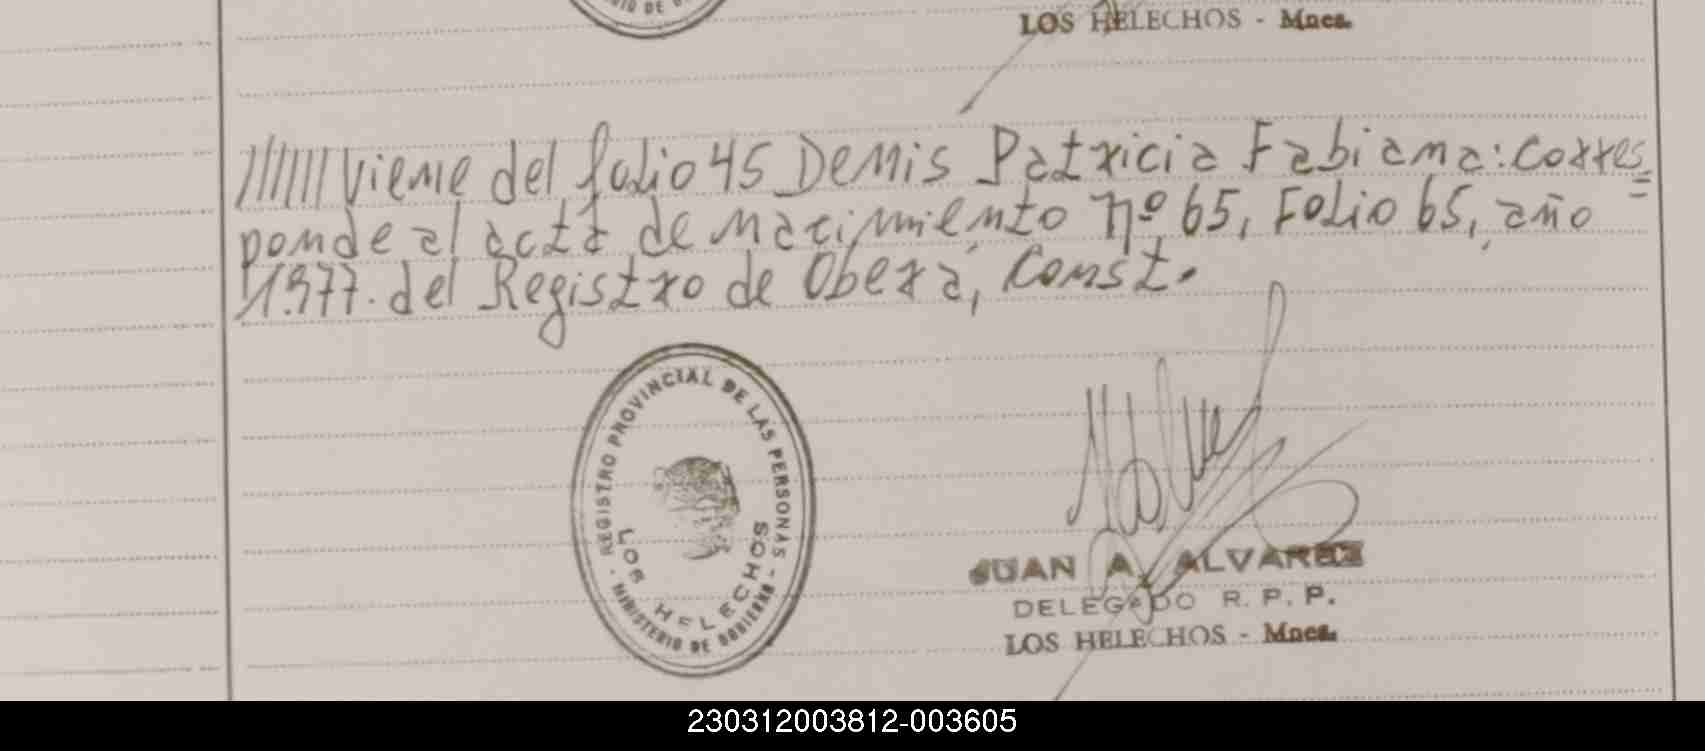 RIO DE
LOS HELECHOS - Mnes.
////// Viene del folio 45 Denis Patricia Fabiana: Corres=
ponde al acta de nacimiento nº 65, Folio 65, año
1.977. del Registro de Obera, Const.
REGISTRO PROVINCIAL DE LAS PERSONAS
LOS HELECHOS
- MINISTERIO DE GOBIERNO -
JUAN A. ALVAREZ
DELEGADO R. P. P.
LOS HELECHOS - Mnes.
230312003812-003605